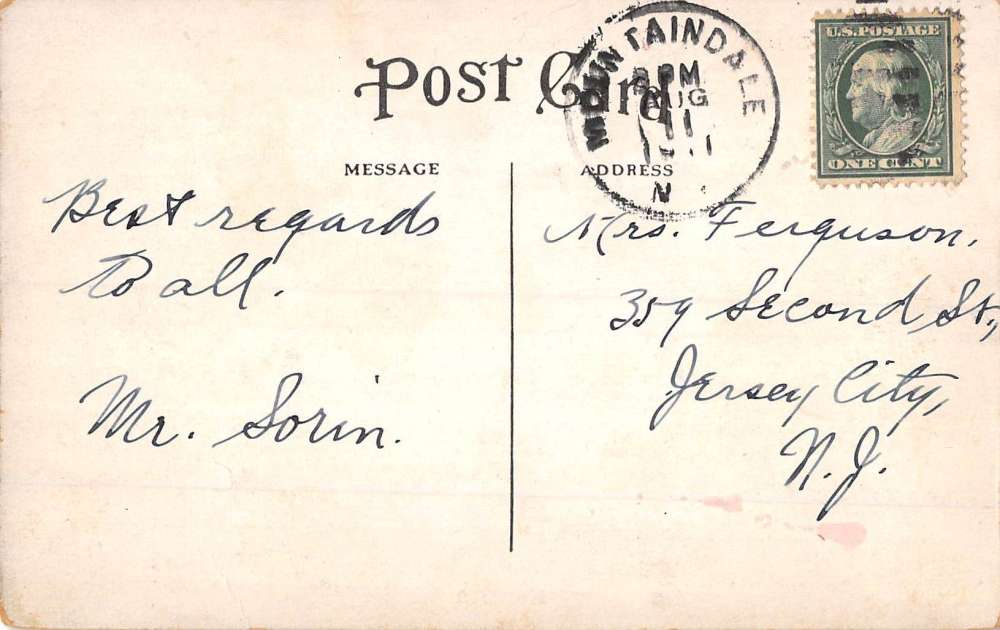 Post Card
MOUNTAINDALE
PM
AUG
11
N
U.S. POSTAGE
ONE CENT
MESSAGE
ADDRESS
Best regards
to all.
Mr. Sorin.
Mrs. Ferguson,
359 Second St.,
Jersey City,
N.J.